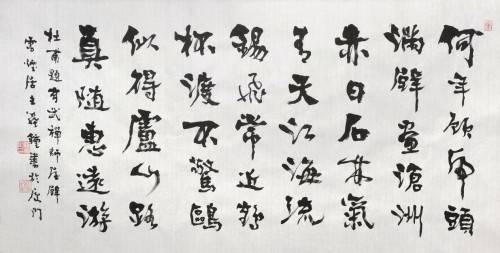 何年顧虎頭
滿壁畫滄洲
赤日石林氣
青天江海流
錫飛常近鶴
杯渡不驚鷗
似得盧山路
真隨惠遠游
杜甫題玄武禪師屋壁
居主 書於廈門